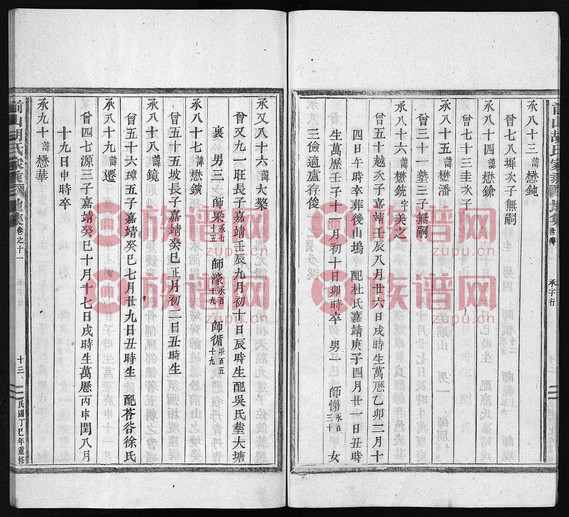 承八十三 諱 懋鈍
曾七八墀次子無嗣
承八十四 諱 懋鎗
曾三十圭次子無嗣
承八十五 諱 懋潘
曾三十一擧三子無嗣
承八十六 諱 懋銃 字美之
曾五十越次子嘉靖壬辰八月廿六日戌時生萬歷乙卯二月十
四日午時卒葬後山塢 配杜氏嘉靖庚子四月廿一日丑時
生萬歷壬子十一月初十日卯時卒 男一 師 承百三十 女
三儉適盧存俊
承又八十六 諱 大擎
曾又九一班長子嘉靖壬辰九月初十日辰時生 配吳氏塟大塘
裏 男三 師榘 承七十三 師濠 承百十九 師循 承百五十九
承八十七 諱 懋鑌
曾五十五坡長子嘉靖癸巳正月初二日丑時生
承八十八 諱 鏡
曾五十六璋五子嘉靖癸巳七月廿九日丑時生 配苓谷徐氏
承八十九 諱 遷
曾四七源三子嘉靖癸巳十月十七日戌時生萬歷丙申閏八月
十九日申時卒
承九十 諱 懋華
前山胡氏家乘
卷之十一
承字行
十三
民國丁巳年重修
族谱网
zupu.cn
族谱网
zupu.cn
族谱网
zupu.cn
族谱网
zupu.cn